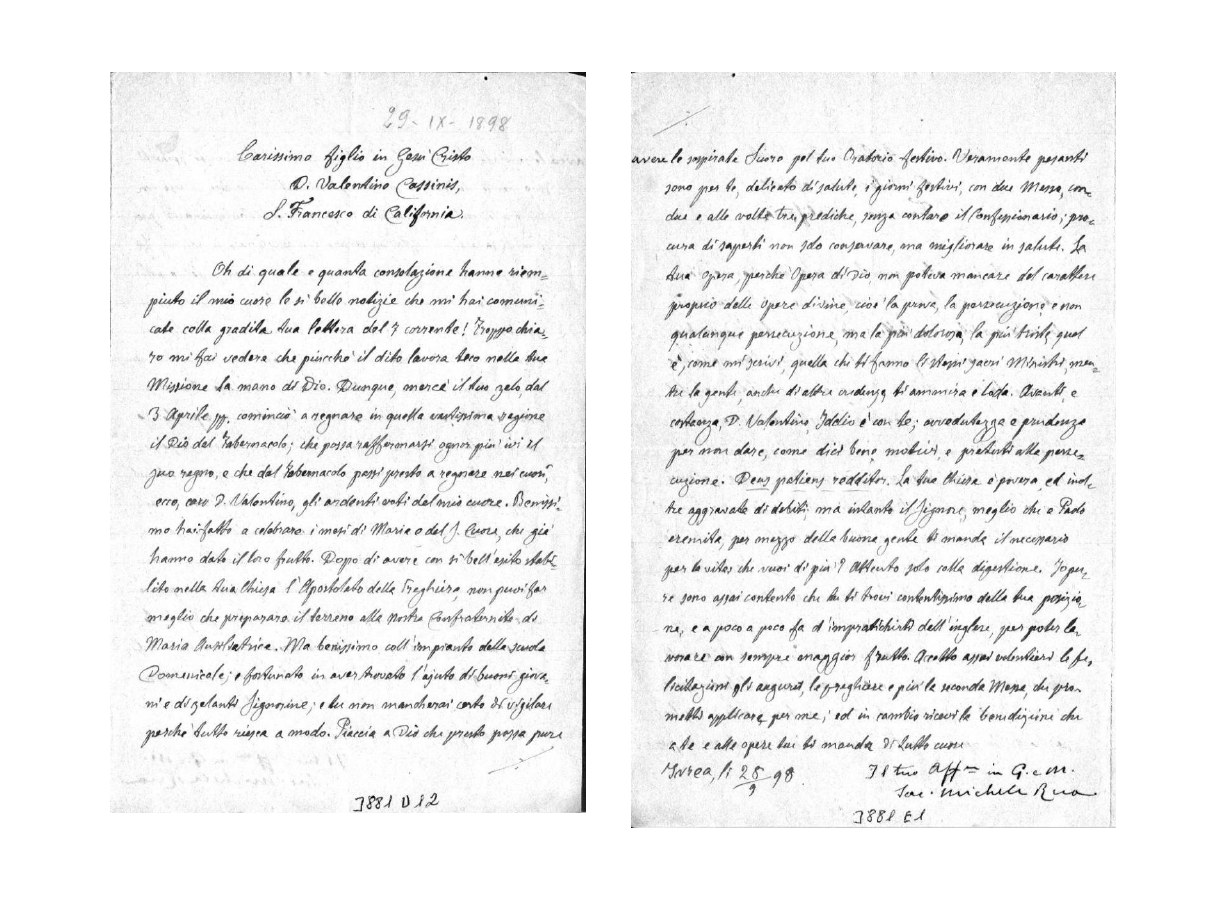 29-IX-1898
Carissimo figlio in Gesù Cristo
D. Valentino Cassinis,
S. Francesco di California.
Oh di quale e quanta consolazione hanno riem=
piuto il mio cuore le sì belle notizie che mi hai comuni=
cate colla gradita tua lettera del 7 corrente! Troppo chia=
ro mi fai vedere che piucchè il dito lavora teco nella tua
Missione la mano di Dio. Dunque, mercè il tuo zelo, dal
3 Aprile pp. cominciò a regnare in quella vastissima regione
il Dio del Tabernacolo; che possa raffermarsi ognor più ivi il
suo regno, e che dal Tabernacolo passi presto a regnare nei cuori,
ecco, caro D. Valentino, gli ardenti voti del mio cuore. Benissi=
mo hai fatto a celebrare i mesi di Maria e del S. Cuore, che già
hanno dato il loro frutto. Dopo di avere con sì bell'esito stabi
lito nella tua Chiesa l'Apostolato della Preghiera, non puoi far
meglio che preparare il terreno alla nostra Confraternita di
Maria Ausiliatrice. Ma benissimo coll'impianto della scuola
Domenicale; e fortunato in aver trovato l'ajuto di buoni giova=
ni e di zelanti Signorine; e tu non mancherai certo di vigilare
perchè tutto riesca a modo. Piaccia a Dio che presto possa pure
J881 D12
avere le sospirate Suore pel tuo Oratorio festivo. Veramente pesanti
sono per te, delicato di salute, i giorni festivi, con due Messe, con=
due e alle volte tre prediche, senza contare il Confessionario; pro=
cura di saperti non solo conservare, ma migliorare in salute. La
tua opera, perchè Opera di Dio, non poteva mancare del carattere
proprio delle Opere divine, cioè la prova, la persecuzione e non
qualunque persecuzione, ma la più dolorosa, la più triste qual
è, come mi scrivi, quella chi ti fanno li stessi sacri Ministri, men=
tre la gente, anche di altre credenze, ti ammira e loda. Avanti, e
costanza, D. Valentino, Iddio è con te; avvedutezza e prudenza
per non dare, come dici bene, motivi, e pretesti alla perse=
cuzione. Deus patiens redditor. La tua Chiesa è povera, ed inol=
tre aggravata di debiti; ma intanto il Signore, meglio che a Paolo
eremita, per mezzo della buona gente ti manda il necessario
per la vita: che vuoi di più? Attento solo colla digestione. Io pu=
re sono assai contento che tu ti trovi contentissimo della tua posizio=
ne, e a poco a poco fa d'impratichirti dell'inglese, per poter la=
vorare con sempre maggior frutto. Accetto assai volentieri le fe=
licitazioni gli augurii, le preghiere e più la seconda Messa, che pro=
metti applicare per me; ed in cambio ricevi la benedizione che
a te e alle opere tue ti manda di tutto cuore
Ivrea, lì 28/9 98. Il tuo Aff.mo in G. e M.
Sac. Michele Rua
J881 E1